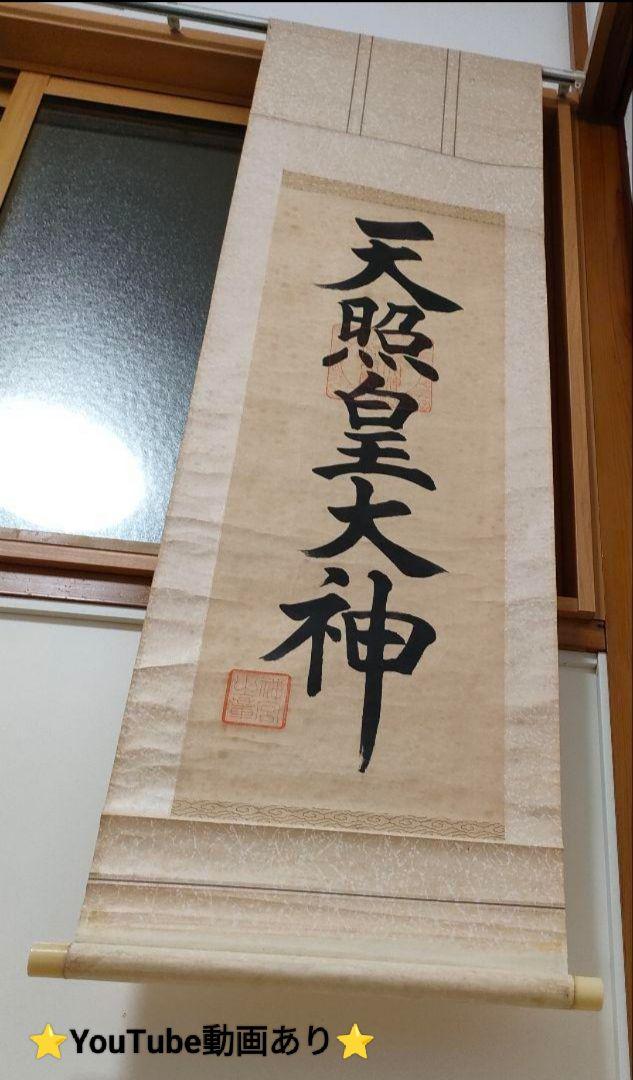 天照皇大神
⭐YouTube動画あり⭐